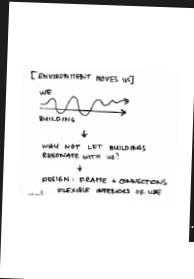 [ENVIRONMENT MOVES US]
WE
BUILDING
WHY NOT LET BUILDINGS
RESONATE WITH US?
DESIGN: FRAME + CONNECTIONS
FLEXIBLE INTERIORS OF USE